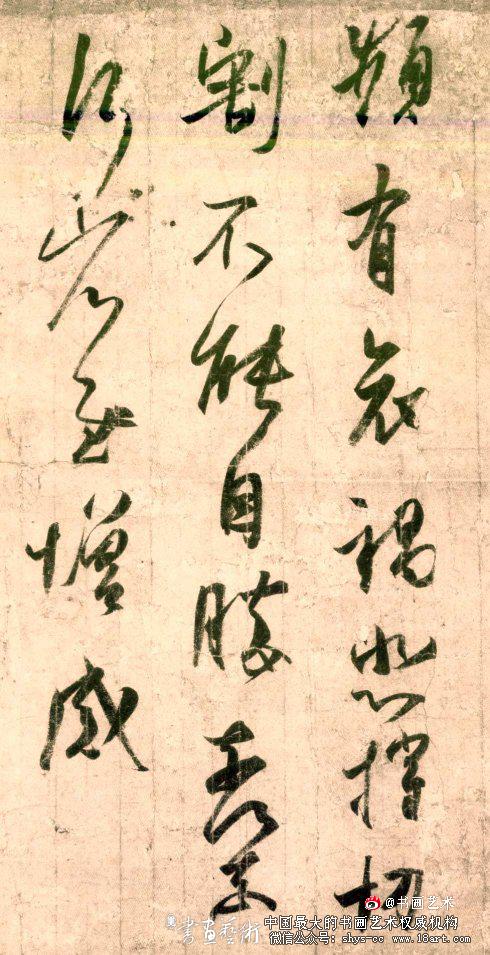 頻有哀禍悲摧切
割不能自勝奈何
奈何省慰增感
@书画艺术
書画藝術
中国最大的书画艺术权威机构
微信公众号：shys-cc www.18art.com